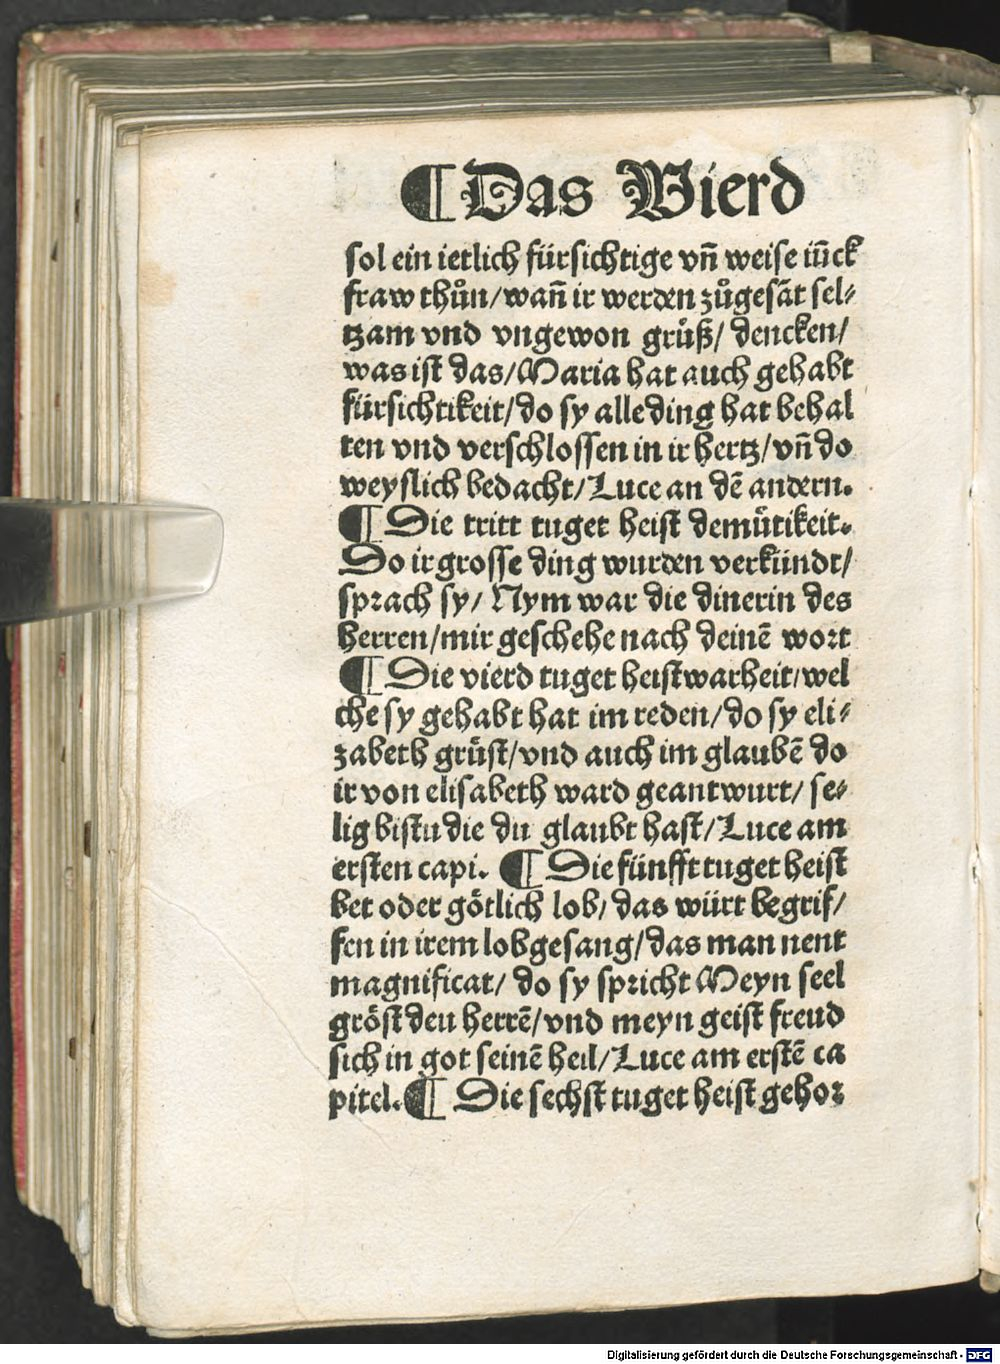 ¶ Das Vierd
sol ein ietlich fürsichtige vñ weise iũck
fraw thůn/wañ ir werden zůgesãt sel⸗
tzam vnd vngewon grůß/ dencken/
was ist das/Maria hat auch gehabt
fürsichtikeit/do sy alle ding hat behal
ten vnd verschlossen in ir hertz/vñ do
weyslich bedacht/Luce an dẽ andern.
¶ Die tritt tuget heist demůtikeit.
Do ir grosse ding wurden verkündt/
sprach sy/ Nym war die dinerin des
herren/mir geschehe nach deinẽ wort
¶ Die vierd tuget heist warheit/wel
che sy gehabt hat im reden/do sy eli⸗
zabeth grůst/vnd auch im glaubẽ do
ir von elisabeth ward geantwurt/ se⸗
lig bistu die du glaubt hast/Luce am
ersten capi. ¶ Die fünfft tuget heist
bet oder götlich lob/ das würt begrif/
fen in irem lobgesang/das man nent
magnificat/ do sy spricht Meyn seel
gröst den herrẽ/vnd meyn geist freud
sich in got seinẽ heil/Luce am erstẽ ca
pitel. ¶ Die sechst tuget heist gehor
Digitalisierung gefördert durch die Deutsche Forschungsgemeinschaft - DFG